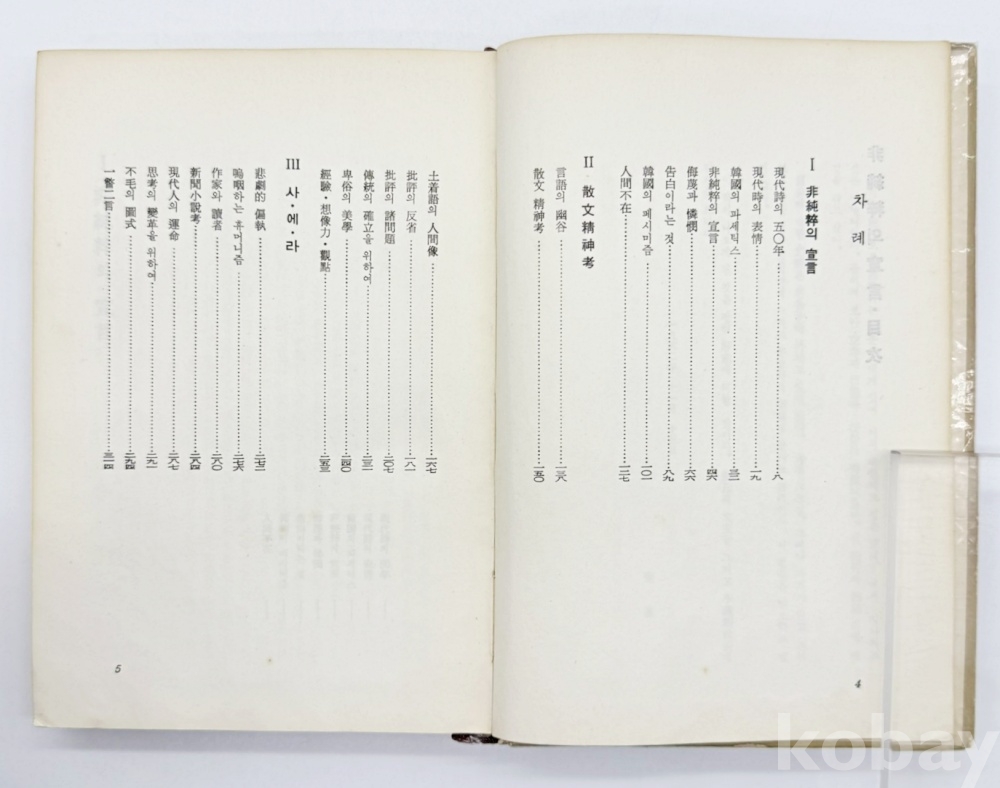 차 례
I 非純粹의 宣言
現代詩의 五〇年 八
現代時의 表情 一九
韓國의 파세틱스 三二
非純粹의 宣言 四六
侮蔑과 憐憫 六六
告白이라는 것 八九
韓國의 페시미즘 一〇一
人間不在 一二七
II 散文精神考
言語의 幽谷 一三八
散文 精神考 一五〇
4
土着語의 人間像 一六七
批評의 反省 一八一
批評의 諸問題 二〇七
傳統의 確立을 위하여 二三一
卑俗의 美學 二四〇
經驗・想像力・觀點 二五三
III 사・에・라
悲劇的 偏執 二七二
嗚咽하는 휴머니즘 二七六
作家와 讀者 二八〇
新聞小說考 二八四
現代人의 運命 二八七
思考의 變革을 위하여 二九一
不毛의 圖式 二九四
一瞥二言 三一四
5
kobay